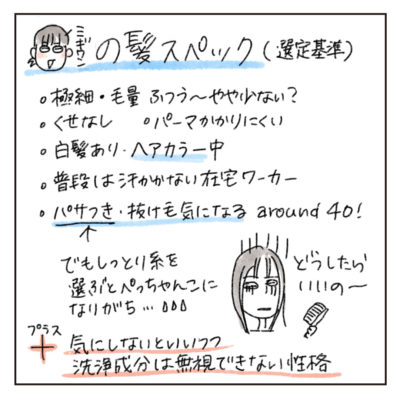 ミニギウニンの髪スペック(選定基準)
・極細・毛量 ふつう〜やや少ない?
・くせなし ・パーマかかりにくい
・白髪あり・ヘアカラー中
・普段は汗かかない在宅ワーカー
・パサつき・抜け毛気になる around 40!
↑
でもしっとり系を
選ぶとぺっちゃんこに
なりがち…
どうしたら
いいの〜
プラス
+ 気にしないといいつつ
洗浄成分は無視できない性格